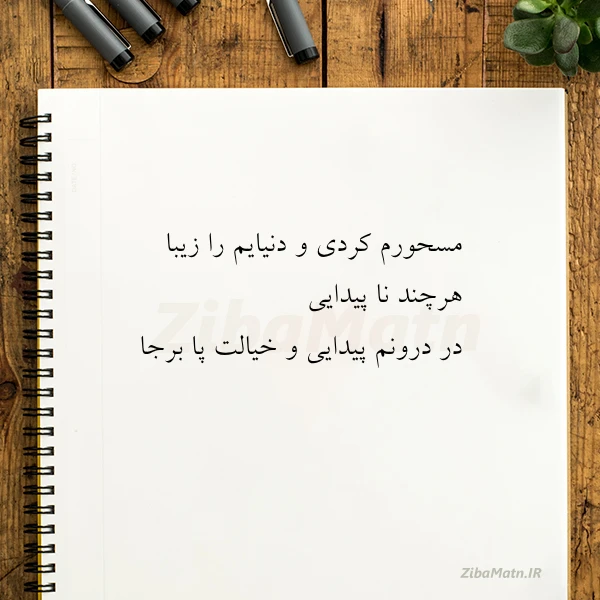 مسحورم کردی و دنیایم را زیبا
هرچند نا پیدایی
در درونم پیدایی و خیالت پا برجا
ZibaMatn
ZibaMatn.IR